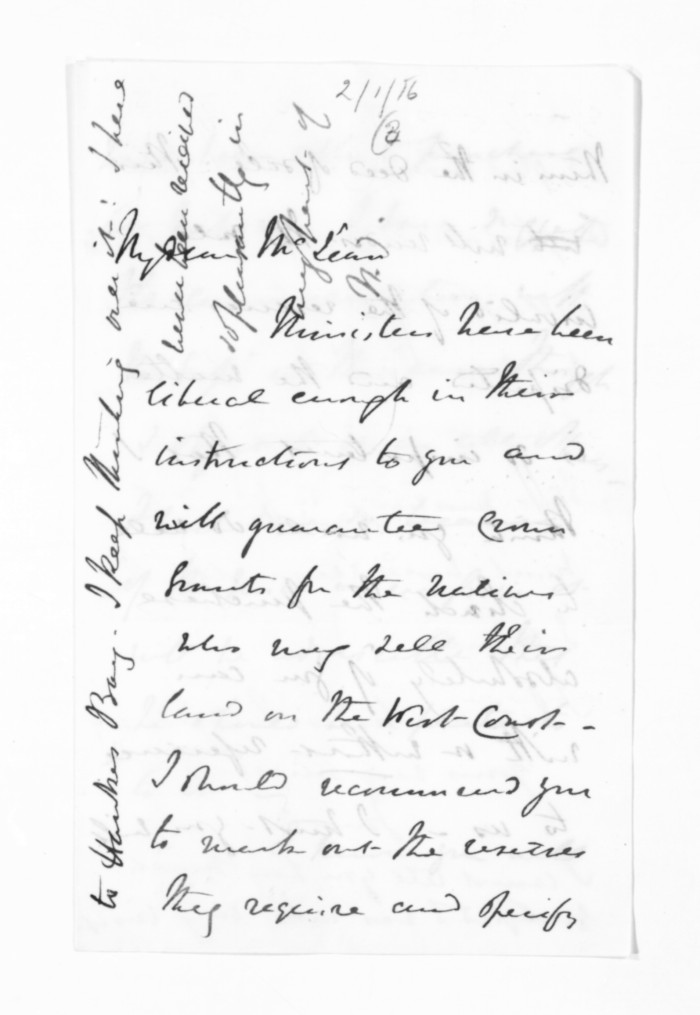 2/1/
My dear McLean
Ministers have been
liberal enough in their
instructions to you and
will guarantee Crown
Grants for the natives
who may sell their
land on the West Coast -
I should recommend you
to mark out the reserves
they require and specify
to Hawkes Bay. I keep thinking over it! I have
never been received
so pleasantly in
any part of